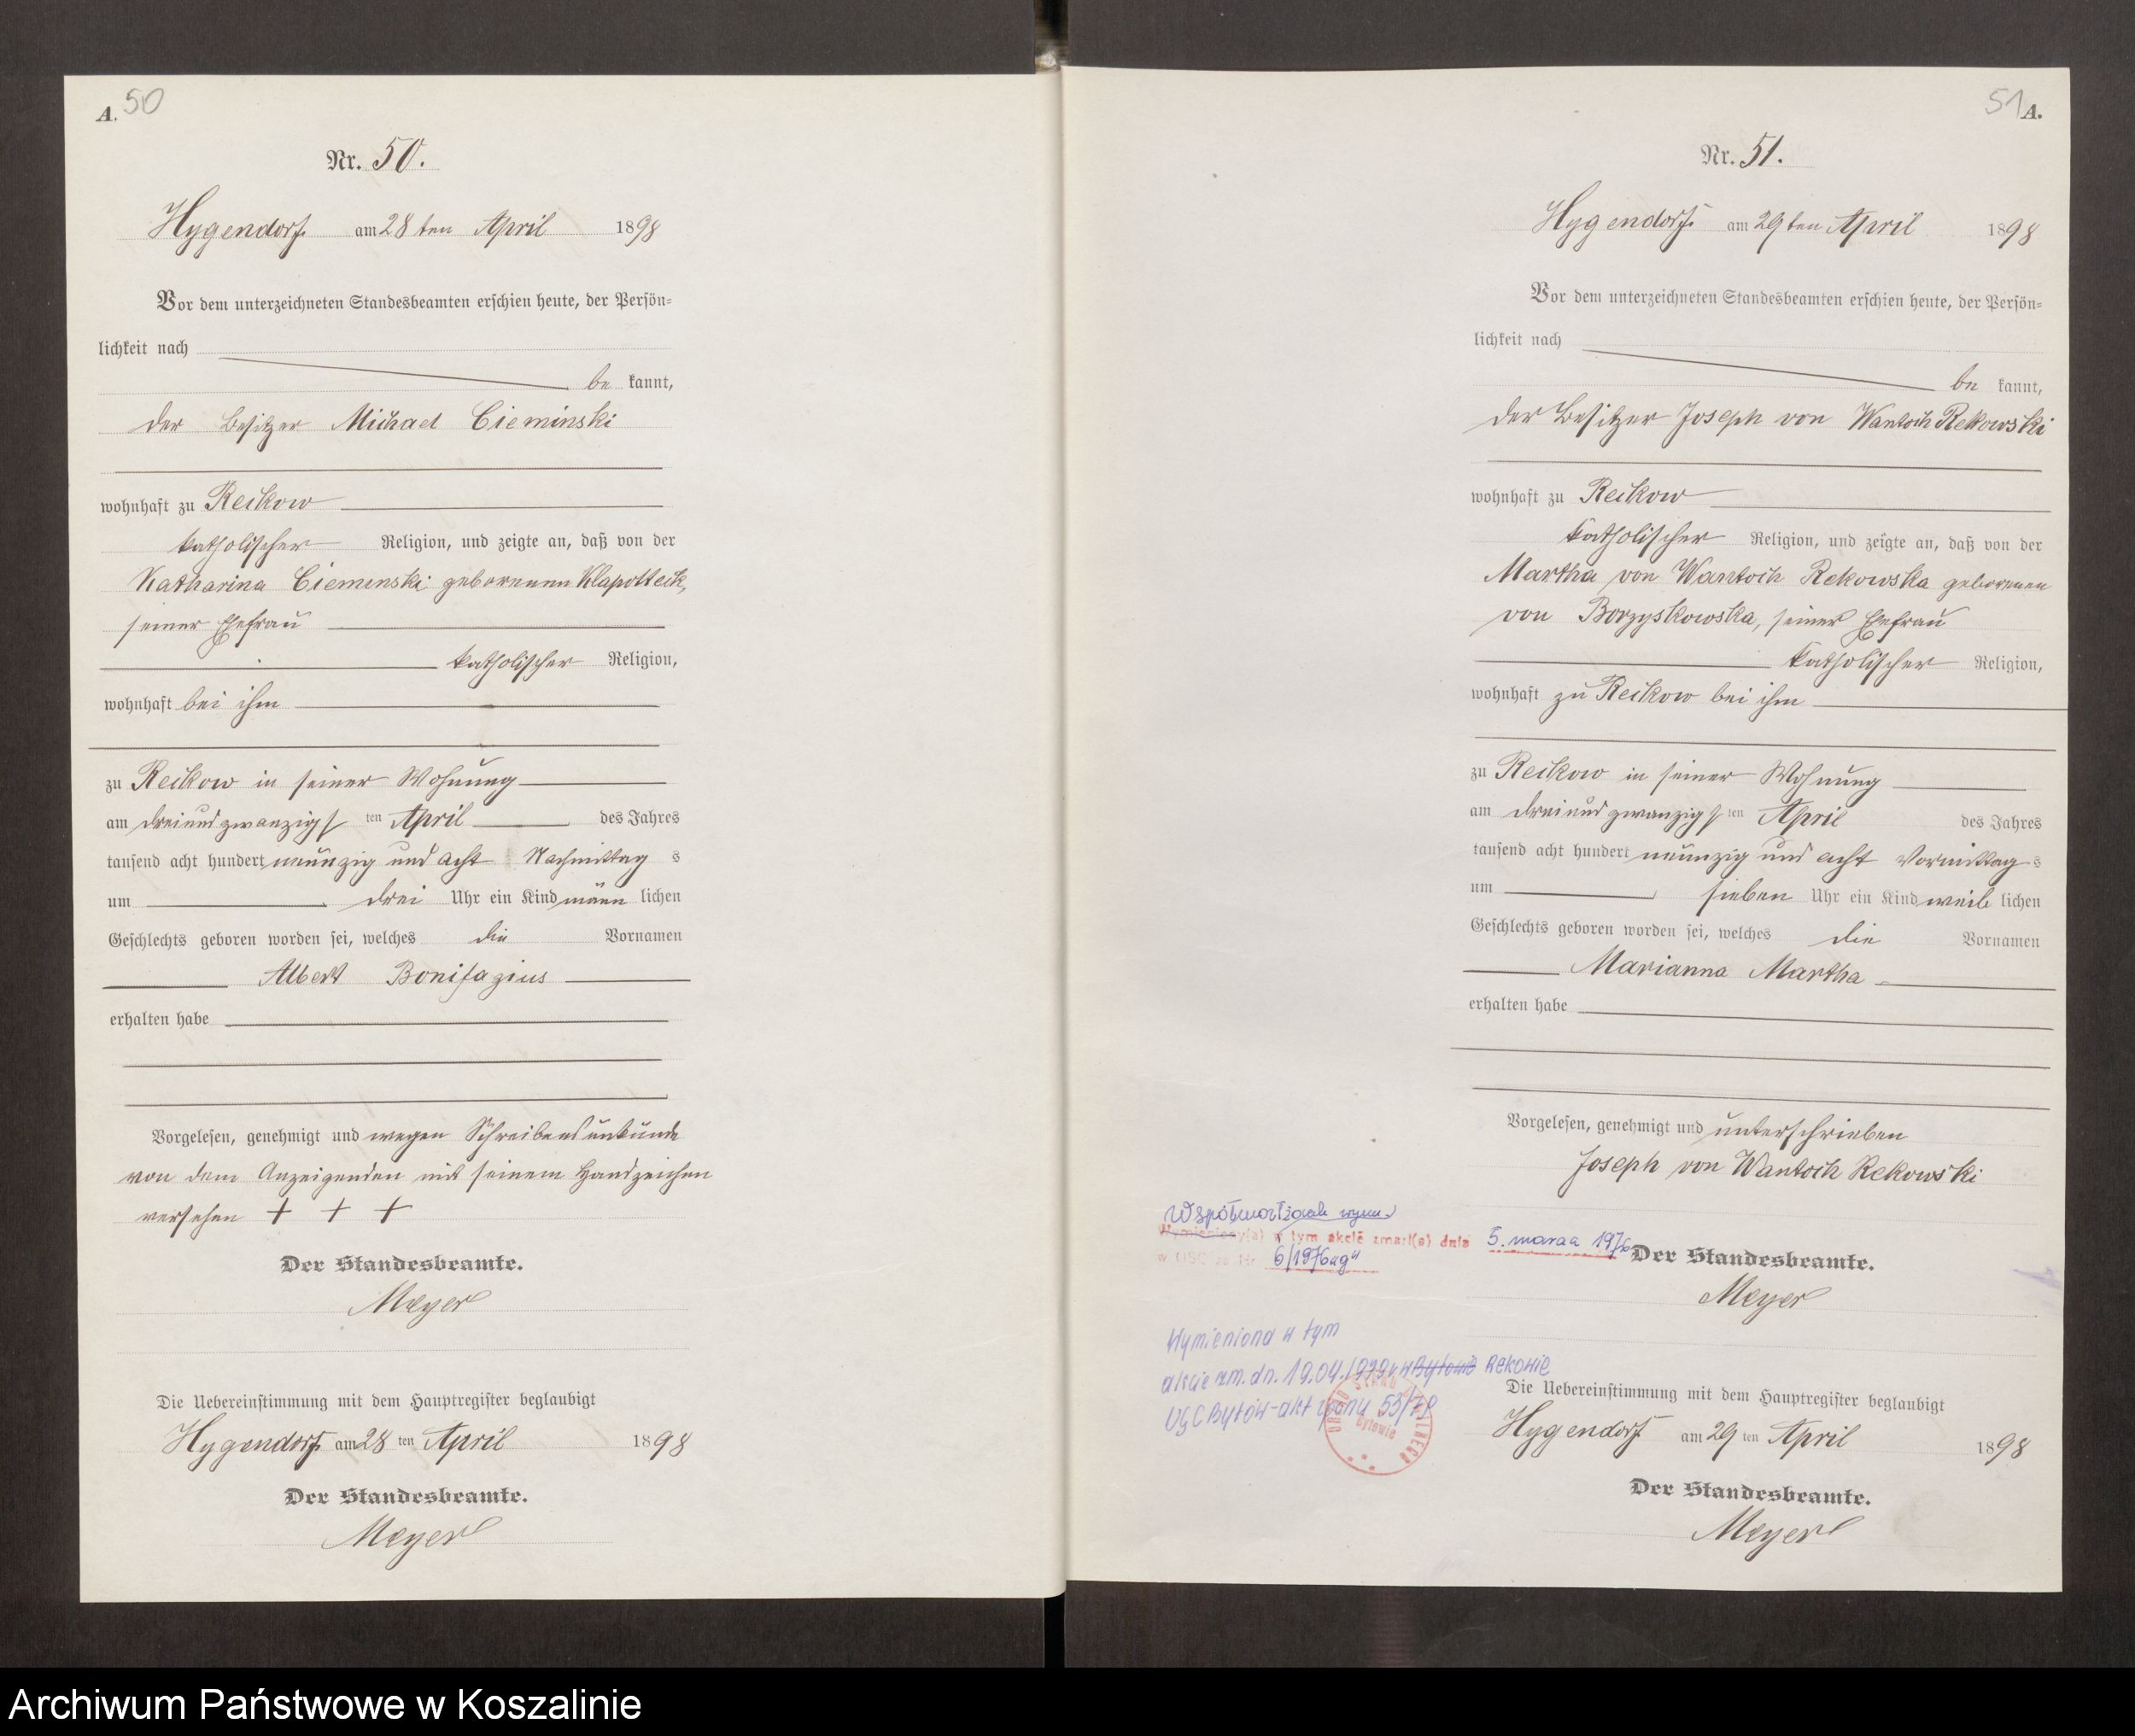 A. 50
Nr. 50.
Hygendorf am 28 ten April 1898
Vor dem unterzeichneten Standesbeamten erschien heute, der Persön=
lichkeit nach
be kannt,
der Besitzer Michael Cieminski
wohnhaft zu Reckow
katholischer Religion, und zeigte an, daß von der
Katharina Cieminski geborenen Klapotteck,
seiner Ehefrau
katholischer Religion,
wohnhaft bei ihm
zu Reckow in seiner Wohnung
am dreiundzwanzigs ten April des Jahres
tausend acht hundert neunzig und acht Nachmittag s
um drei Uhr ein Kind männ lichen
Geschlechts geboren worden sei, welches die Vornamen
Albert Bonifazius
erhalten habe
Vorgelesen, genehmigt und wegen Schreibensunkunde
von dem Anzeigenden mit seinem Handzeichen
versehen + + +
Der Standesbeamte.
Meyer
Die Uebereinstimmung mit dem Hauptregister beglaubigt
Hygendorf am 28 ten April 1898
Der Standesbeamte.
Meyer
51 A.
Nr. 51.
Hygendorf am 29 ten April 1898
Vor dem unterzeichneten Standesbeamten erschien heute, der Persön=
lichkeit nach
be kannt,
der Besitzer Joseph von Wantoch Rekowski
wohnhaft zu Reckow
katholischer Religion, und zeigte an, daß von der
Martha von Wantoch Rekowska geborenen
von Borzyskowska, seiner Ehefrau
katholischer Religion,
wohnhaft zu Reckow bei ihm
zu Reckow in seiner Wohnung
am dreiundzwanzigs ten April des Jahres
tausend acht hundert neunzig und acht Vormittag s
um sieben Uhr ein Kind weib lichen
Geschlechts geboren worden sei, welches die Vornamen
Marianna Martha
erhalten habe
Vorgelesen, genehmigt und unterschrieben
Joseph von Wantoch Rekowski
Współmałżonek wym.
Wymieniony(a) w tym akcie zmarł(a) dnia 5. marca 1976
w USC za Nr 6/1976
Der Standesbeamte.
Meyer
Wymieniona w tym
akcie zm. dn. 19.04.1979 r. w Bytowie Rekowie
USC Bytów - akt zgonu 53/79
Bytowie
Die Uebereinstimmung mit dem Hauptregister beglaubigt
Hygendorf am 29 ten April 1898
Der Standesbeamte.
Meyer
Archiwum Państwowe w Koszalinie